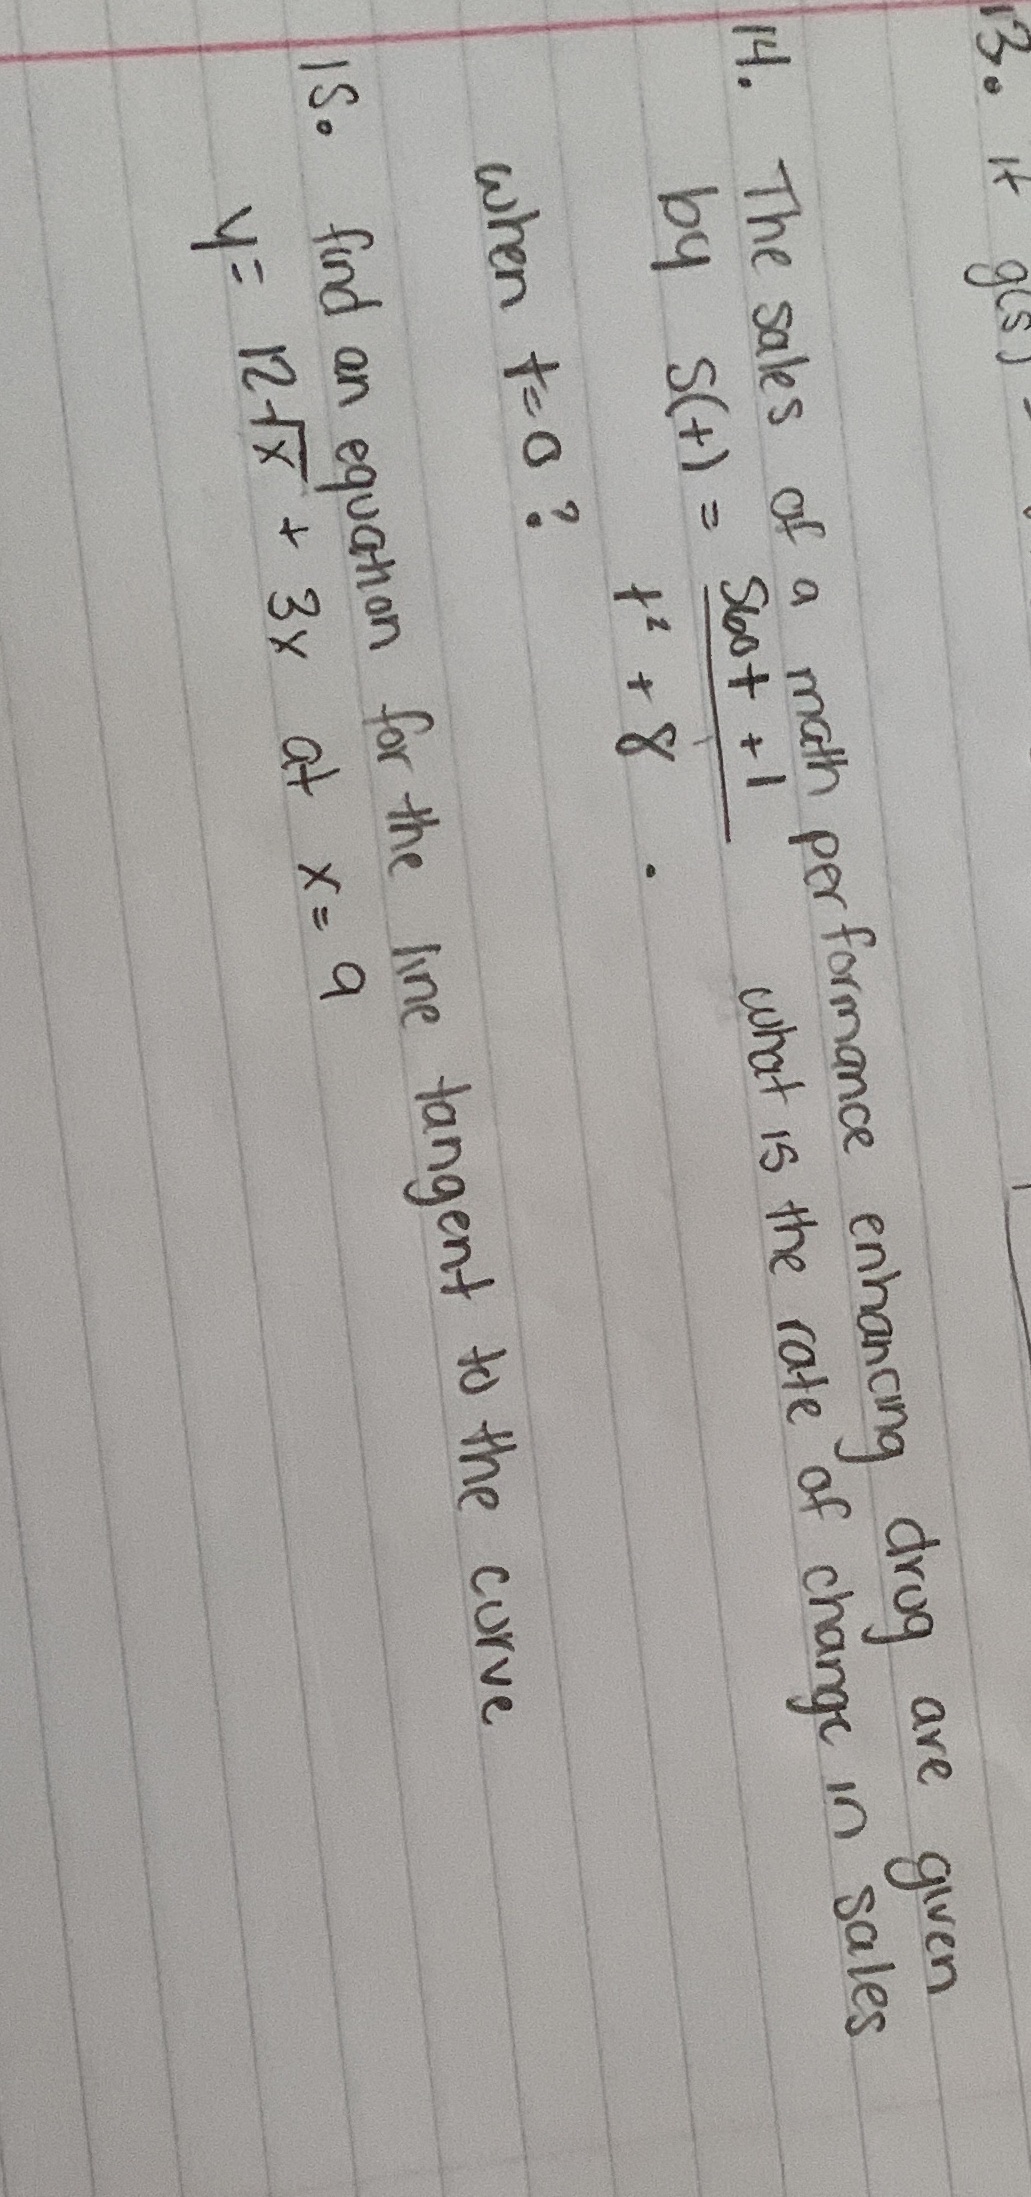 13. If g(s)
14. The sales of a math performance enhancing drug are given
by S(t) = 560t + 1 what is the rate of change in sales
t² + 8 .
when t=0?
15. find an equation for the line tangent to the curve
y= 12√x + 3x at x= 9